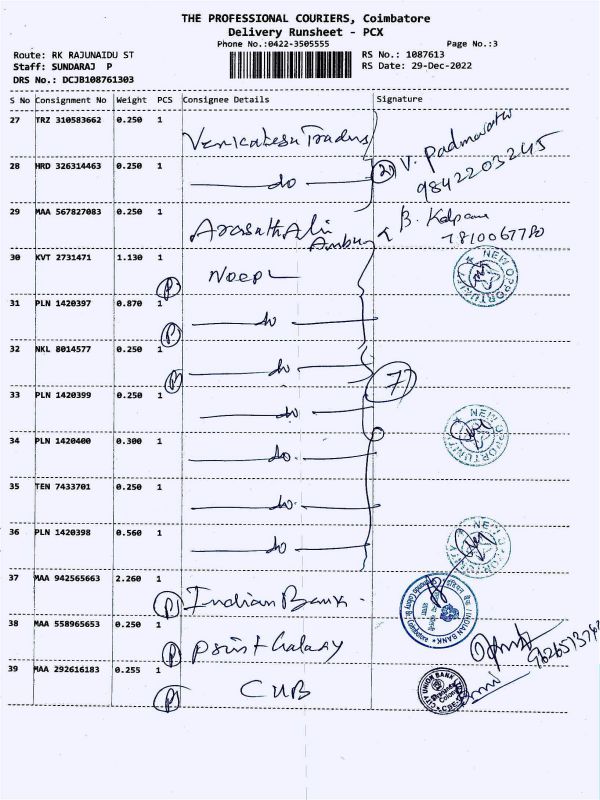 THE PROFESSIONAL COURIERS, Coimbatore
Delivery Runsheet - PCX
Phone No.:0422-3505555
Page No.:3
Route: RK RAJUNAIDU ST
RS No.: 1087613
Staff: SUNDARAJ P
RS Date: 29-Dec-2022
DRS No.: DCJB108761303
S No Consignment No Weight PCS Consignee Details Signature
27 TRZ 310583662 0.250 1 Venkatesu Traders
28 HRD 326314463 0.250 1 do 2 V. Padmavathi
9842203245
29 MAA 567827083 0.250 1 B. Kalpana
7810067780
30 KVT 2731471 1.130 1 P NEW OPPORTUNITY
31 PLN 1420397 0.870 1 P do
32 NKL 8014577 0.250 1 P do
7
33 PLN 1420399 0.250 1 do
34 PLN 1420400 0.300 1 do. NEW OPPORTUNITY
35 TEN 7433701 0.250 1 do.
36 PLN 1420398 0.560 1 do NEW
37 MAA 942565663 2.260 1 P Indian Bank INDIAN BANK
38 MAA 558965653 0.250 1 P Print Galaxy
39 MAA 292616183 0.255 1 P CUB CITY UNION BANK LTD